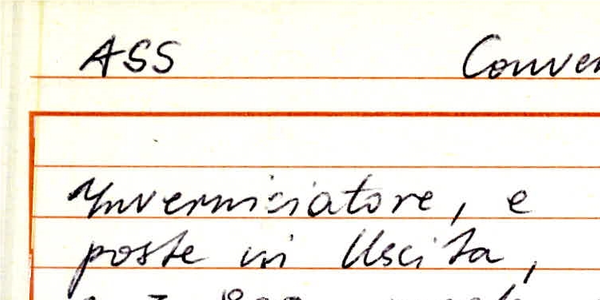 ASS Conver
Inverniciatore, e
poste in Uscita,